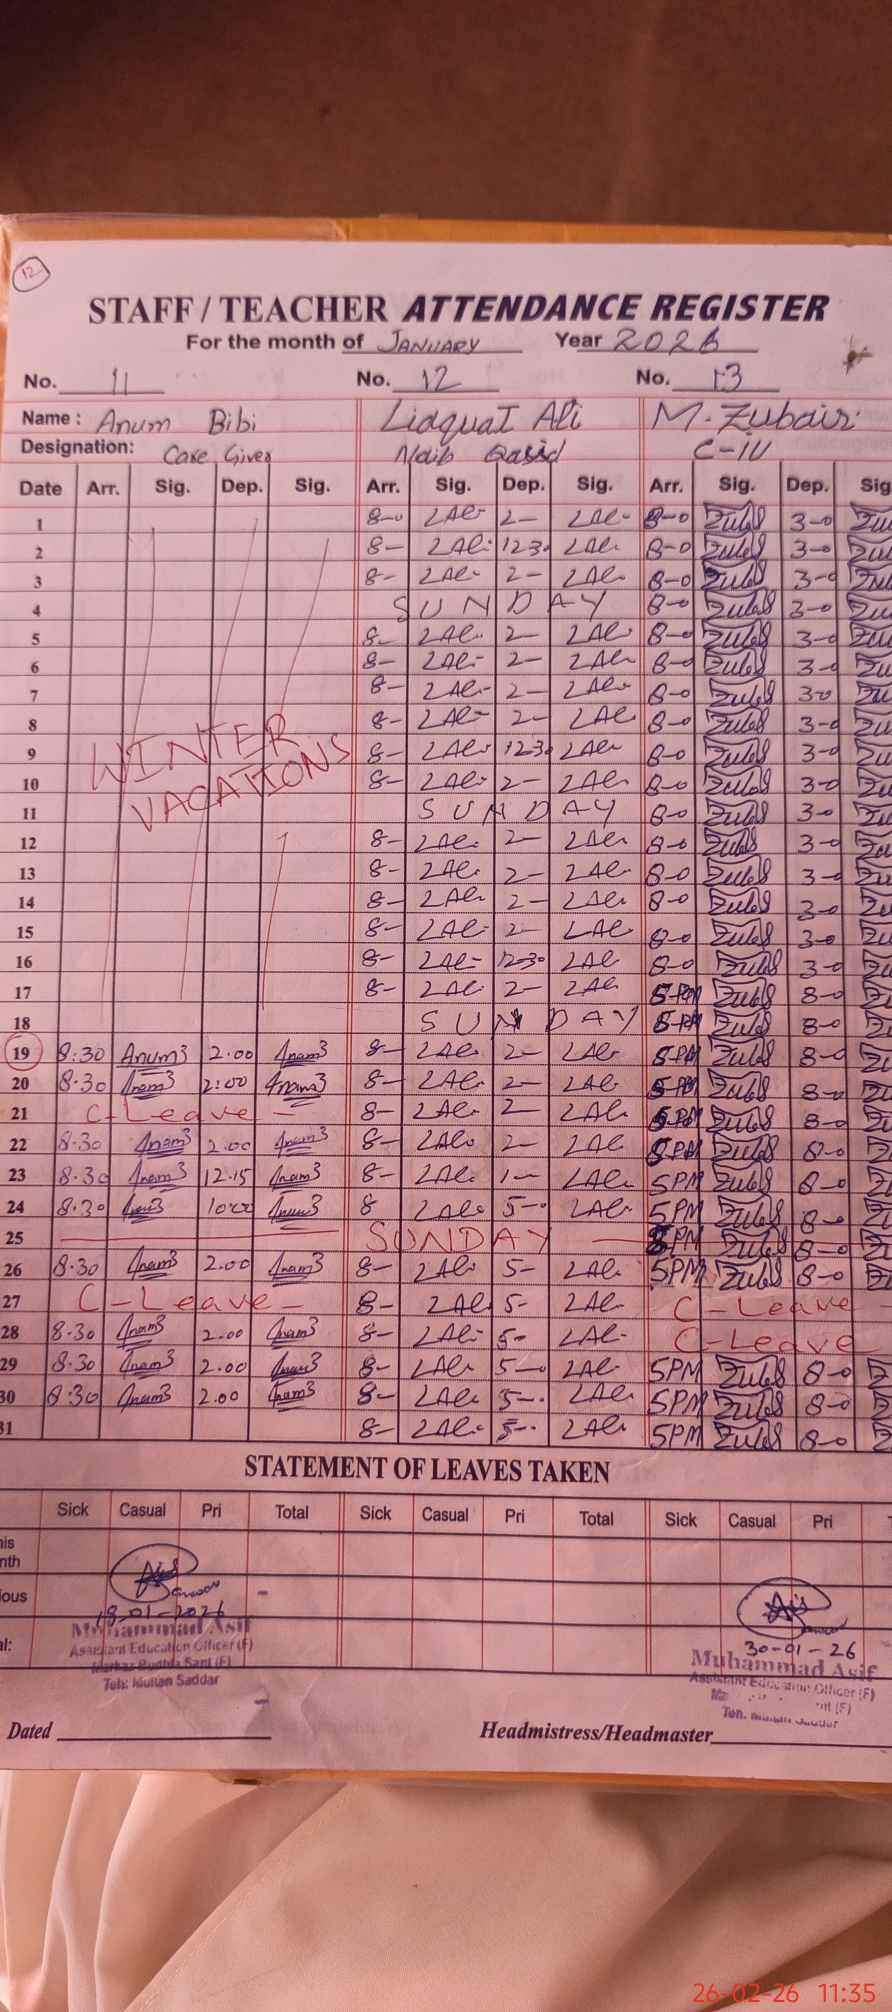 12
STAFF / TEACHER ATTENDANCE REGISTER
For the month of JANUARY Year 2026
No. 11 No. 12 No. 13
Name : Anum Bibi Liaquat Ali M. Zubair
Designation: Care Giver Naib Qasid C-IV
Date Arr. Sig. Dep. Sig. Arr. Sig. Dep. Sig. Arr. Sig. Dep. Sig
1 8-0 LAli 2- LAli 8-0 Zubair 3-0
2 8- LAli 12-30 LAli 8-0 Zubair 3-0
3 8- LAli 2- LAli 8-0 Zubair 3-0
4 SUNDAY 8-0 Zubair 3-0
5 8- LAli 2- LAli 8-0 Zubair 3-0
6 8- LAli 2- LAli 8-0 Zubair 3-0
7 8- LAli 2- LAli 8-0 Zubair 3-0
8 8- LAli 2- LAli 8-0 Zubair 3-0
WINTER
9 8- LAli 12-30 LAli 8-0 Zubair 3-0
VACATIONS
10 8- LAli 2- LAli 8-0 Zubair 3-0
11 SUNDAY 8-0 Zubair 3-0
12 8- LAli 2- LAli 8-0 Zubair 3-0
13 8- LAli 2- LAli 8-0 Zubair 3-0
14 8- LAli 2- LAli 8-0 Zubair 3-0
15 8- LAli 2- LAli 8-0 Zubair 3-0
16 8- LAli 12-30 LAli 8-0 Zubair 3-0
17 8- LAli 2- LAli 5-PM Zubair 8-0
18 SUNDAY 5-PM Zubair 8-0
19 8:30 Anum 2.00 Anam 8- LAli 2- LAli 5-PM Zubair 8-0
20 8.30 Anam 2:00 Anam 8- LAli 2- LAli 5-PM Zubair 8-0
21 C-Leave - 8- LAli 2- LAli 5-PM Zubair 8-0
22 8.30 Anam 2.00 Anam 8- LAli 2- LAli 5PM Zubair 8-0
23 8.30 Anam 12.15 Anam 8- LAli 1- LAli 5PM Zubair 8-0
24 8.30 Anam Anam 8 LAli 5- LAli 5PM Zubair 8-0
25 SUNDAY 5PM Zubair 8-0
26 8.30 Anam 2.00 Anam 8- LAli 5- LAli 5PM Zubair 8-0
27 C-Leave - 8- LAli 5- LAli C-Leave -
28 8.30 Anam 2.00 Anam 8- LAli 5- LAli C-Leave
29 8.30 Anam 2.00 Anam 8- LAli 5-0 LAli 5PM Zubair 8-0
30 8.30 Anam 2.00 Anam 8- LAli 5- LAli 5PM Zubair 8-0
31 8- LAli 5- LAli 5PM Zubair 8-0
STATEMENT OF LEAVES TAKEN
Sick Casual Pri Total Sick Casual Pri Total Sick Casual Pri
his
nth
ious
al:
18-01-2026 30-01-26
Muhammad Asif Muhammad Asif
Assistant Education Officer (F) Assistant Education Officer (F)
Markaz Budhla Sant (F)
Teh: Multan Saddar
Dated Headmistress/Headmaster
26-02-26 11:35